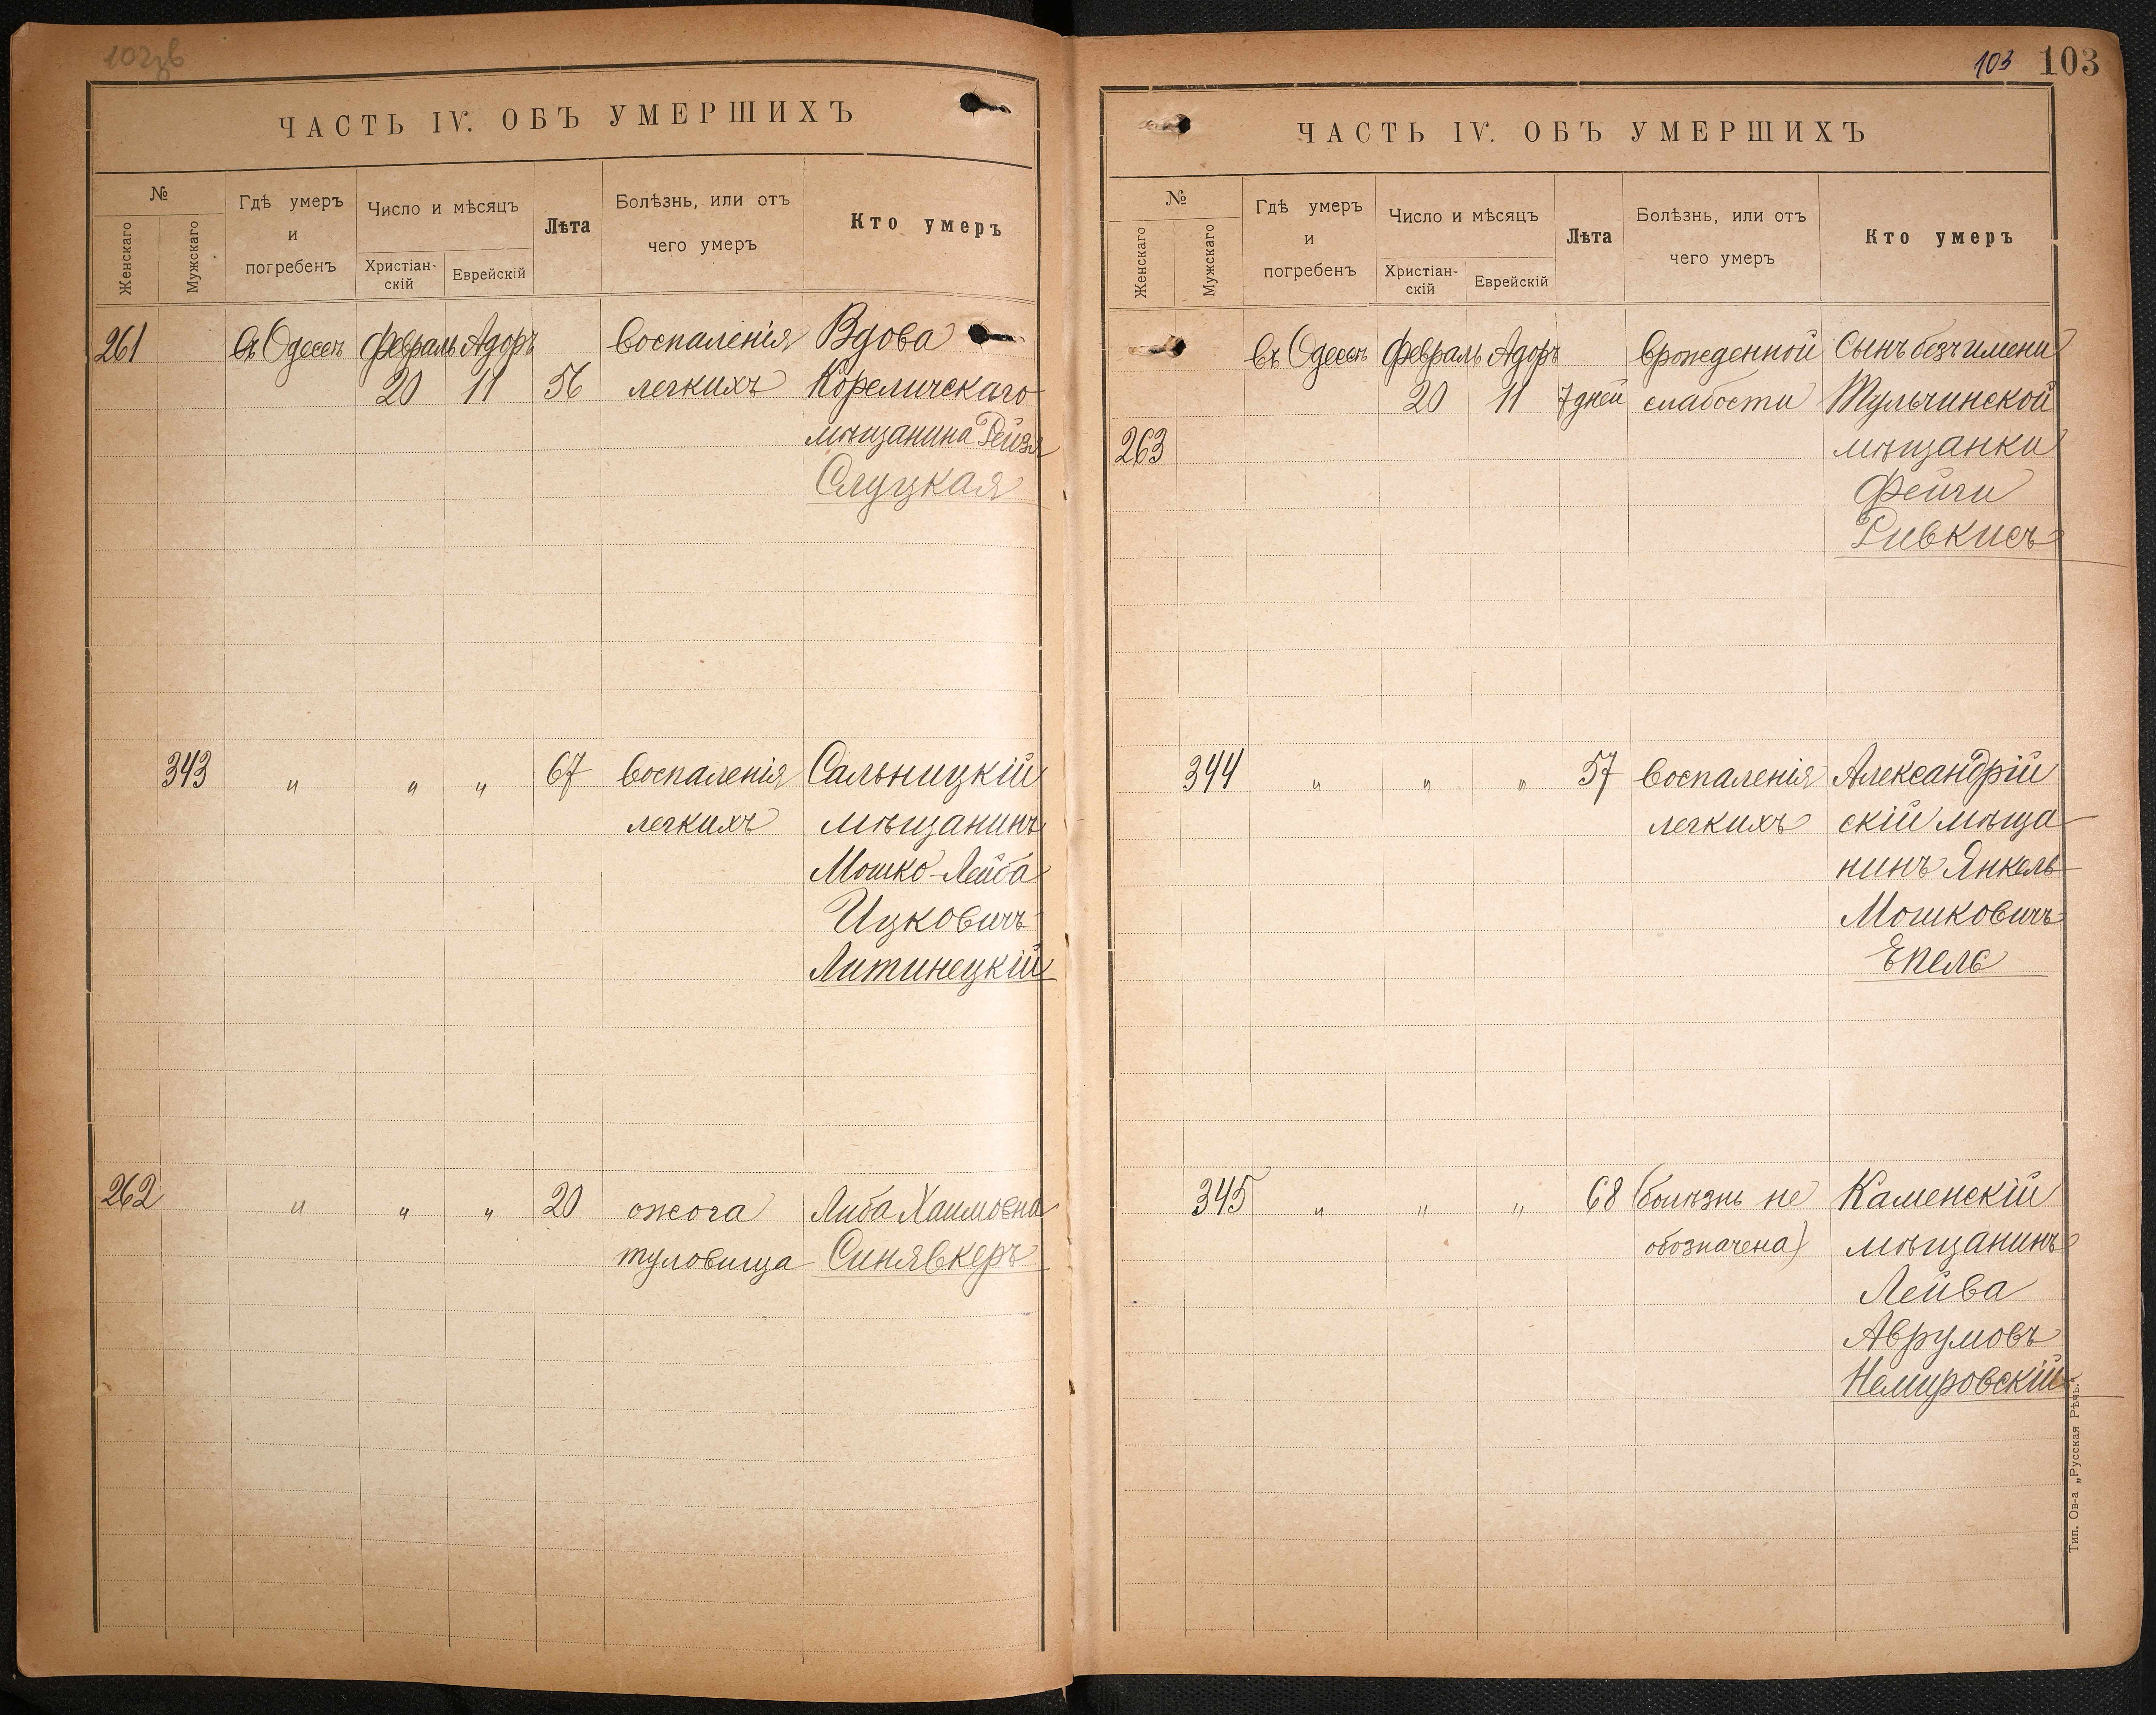 ЧАСТЬ IV. ОБЪ УМЕРШИХЪ
№
Женскаго
Мужскаго
Гдѣ умеръ
и
погребенъ
Число и мѣсяцъ
Христіан-
скій
Еврейскій
Лѣта
Болѣзнь, или отъ
чего умеръ
Кто умеръ
261 въ Одессѣ февраль Адоръ воспаленія Вдова
20 11 56 легкихъ Кореличскаго
мѣщанина Рейзя
Слуцкая
343 " " " 67 воспаленія Сальницкій
легкихъ мѣщанинъ
Мошко-Лейба
Ицковичъ
Литинецкій
262 " " " 20 ожога Либа Хаимовна
туловища Синявкеръ
103 103
ЧАСТЬ IV. ОБЪ УМЕРШИХЪ
№
Женскаго
Мужскаго
Гдѣ умеръ
и
погребенъ
Число и мѣсяцъ
Христіан-
скій
Еврейскій
Лѣта
Болѣзнь, или отъ
чего умеръ
Кто умеръ
въ Одессѣ февраль Адоръ врожденной Сынъ безъ имени
20 11 7 дней слабости Тульчинской
263 мѣщанки
Фейги
Ривкисъ
344 " " " 57 воспаленія Александрій
легкихъ скій мѣща
нинъ Янкель
Мошковичъ
Епель
345 " " " 68 (болѣзнь не Каменскій
обозначена) мѣщанинъ
Лейва
Аврумовъ
Немировскій
Тип. Ов-а „Русская Рѣчь.“